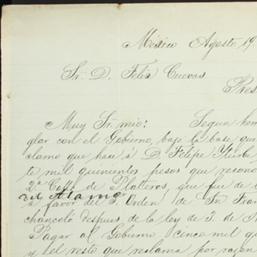 Mexico Agosto 19
Sr. D. Felix Cuevas
Pres
Muy Sr. mio:
glar con el Gobierno, bajo la base que
alamo que han á D. Felipe
te mil quinientos pesos que recono
2ª Calle de Plateros, que fué de
a favor del 3º Orden de Sn Fran
despues de la ley de 5 de
Pagar al Gobierno cinco mil
y el resto que reclama por razon